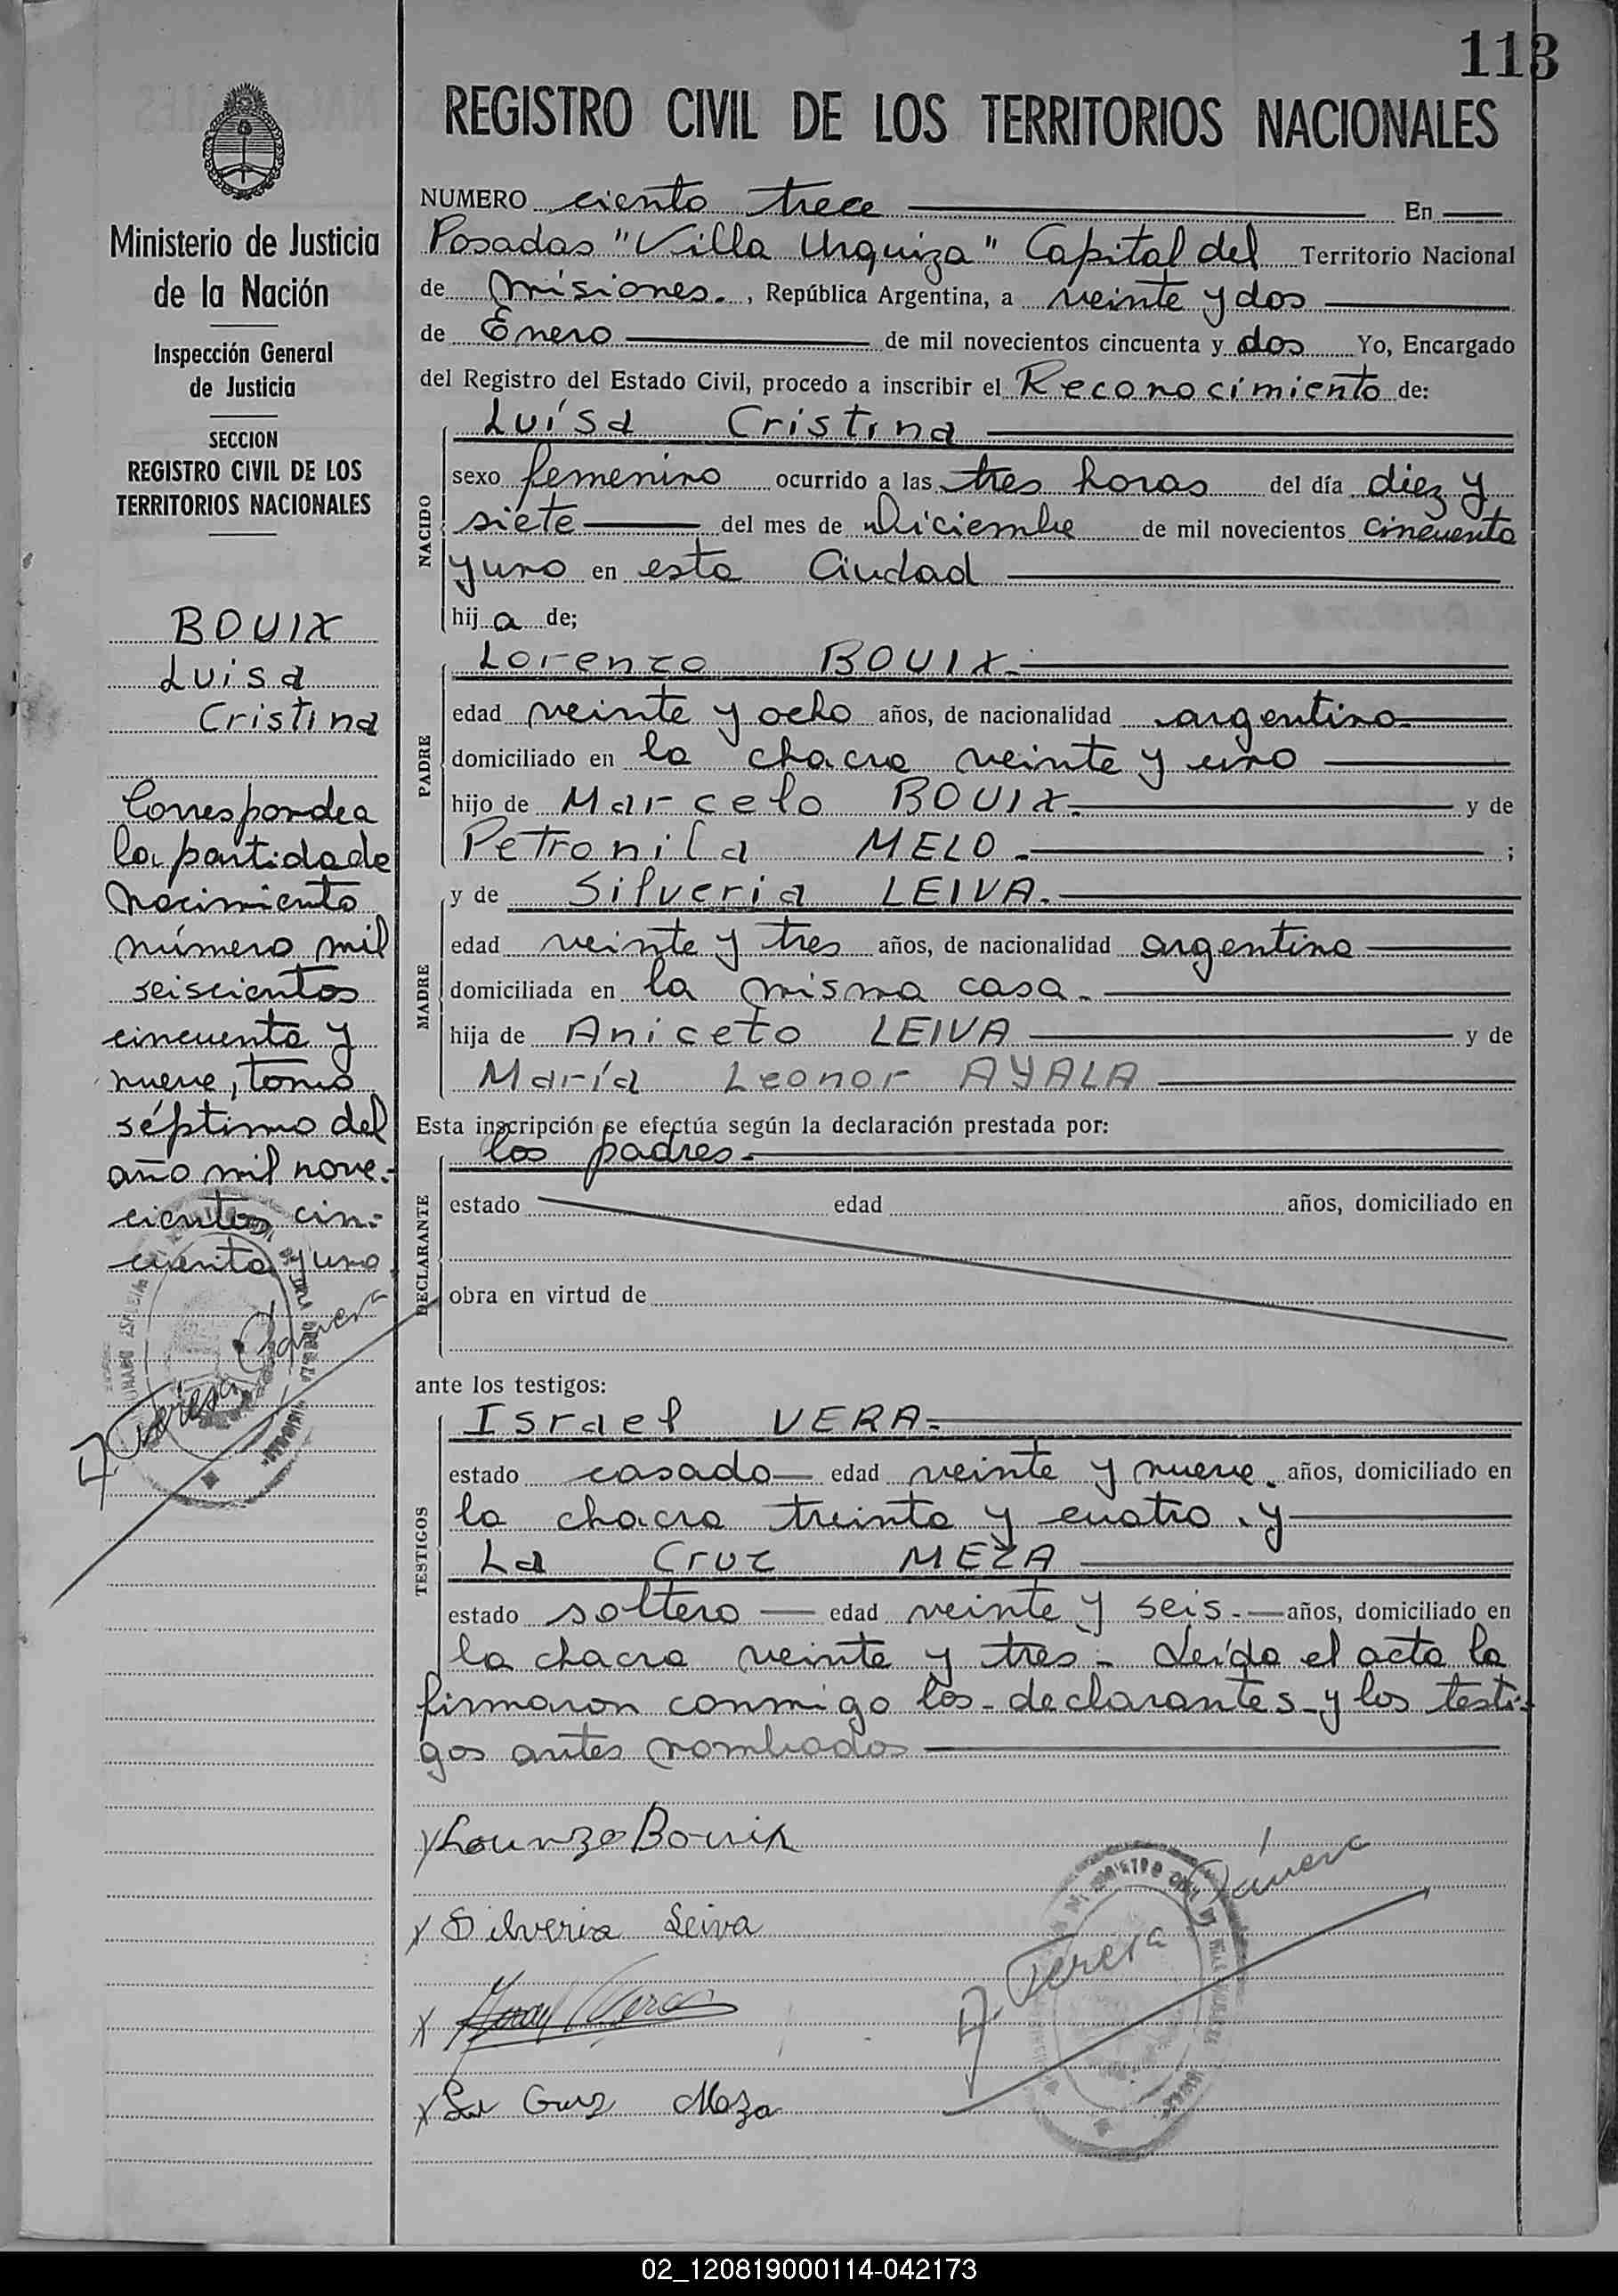 113
REGISTRO CIVIL DE LOS TERRITORIOS NACIONALES
Ministerio de Justicia
de la Nación
Inspección General
de Justicia
SECCION
REGISTRO CIVIL DE LOS
TERRITORIOS NACIONALES
BOUIX
Luisa
Cristina
Corresponde a
la partida de
nacimiento
número mil
seiscientos
cincuenta y
nueve, tomo
séptimo del
año mil nove-
cientos cin-
cuenta y uno
A. Teresa
NUMERO ciento trece En
Posadas "Villa Urquiza" Capital del Territorio Nacional
de Misiones., República Argentina, a veinte y dos
de Enero de mil novecientos cincuenta y dos Yo, Encargado
del Registro del Estado Civil, procedo a inscribir el Reconocimiento de:
Luísa Cristina
NACIDO
sexo femenino ocurrido a las tres horas del día diez y
siete del mes de Diciembre de mil novecientos cincuenta
y uno en esta Ciudad
hija de;
PADRE
Lorenzo BOUIX.
edad veinte y ocho años, de nacionalidad argentino
domiciliado en la chacra veinte y uno
hijo de Marcelo BOUIX. y de
Petronila MELO. ;
MADRE
y de Silveria LEIVA.
edad veinte y tres años, de nacionalidad argentina
domiciliada en la misma casa.
hija de Aniceto LEIVA y de
María Leonor AYALA
Esta inscripción se efectúa según la declaración prestada por:
los padres.
DECLARANTE
estado edad años, domiciliado en
obra en virtud de
ante los testigos:
TESTIGOS
Israel VERA.
estado casado edad veinte y nueve. años, domiciliado en
la chacra treinta y cuatro. y
La Cruz MEZA
estado soltero edad veinte y seis. años, domiciliado en
la chacra veinte y tres - Leída el acta la
firmaron conmigo los declarantes y los testi-
gos antes nombrados
x Lorenzo Bouix
x Silveria Leiva
x
x La Cruz Meza
A. Teresa
02_120819000114-042173